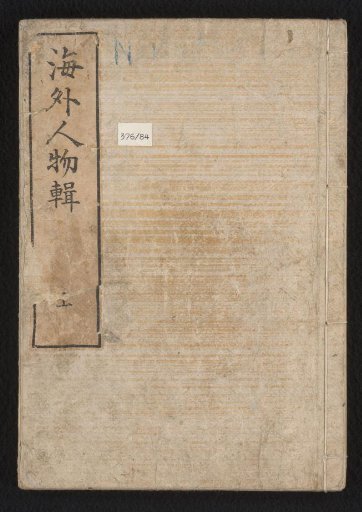 海外人物輯
376/84